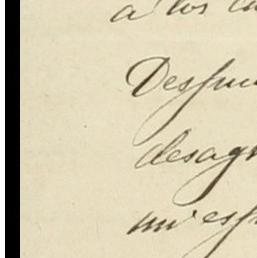 a los
Despu
desagr
mi esp